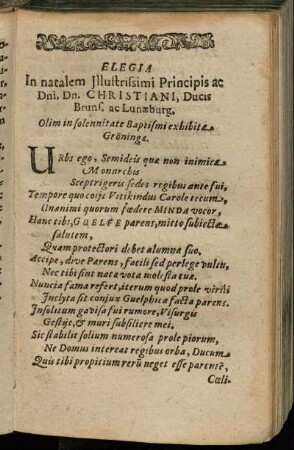 ELEGIA
In natalem Jllustrissimi Principis ac
Dni, Dn. CHRISTIANI, Ducis
Brunf. ac Lunæburg.
Olim in solennitate Baptismi exhibita
Gröningæ.
URbs ego, Semideis quæ non inimica
Monarchis
Sceptrigeris sedes regibus ante fui,
Tempore quo cojit Vitikindus Carole tecum,
Unanimi quorum fœdere MINDA vocor,
Hanc tibi, GUELFE parens, mitto subjecta
salutem,
Quam protectori debet alumna suo.
Accipe, dive Parens, facili sed perlege vultu,
Nec tibi sint nata vota molesta tuæ.
Nuncia fama refert, iterum quod prole virili
Jnclyta sit conjux Guelphica facta parens.
Jnsolitum gavisa fui rumore, Visurgis
Gestijt, & muri subsiliere mei.
Sic stabilit solium numerosa prole piorum,
Ne Domus intereat regibus orba, Ducum
Quis tibi propitium rerū neget esse parentē,
Cœli.